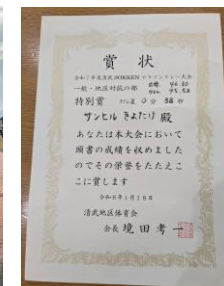 賞状
令和7年度清武SOEKENマラソンリレー大会
一般・地区対抗の部
特別賞 タイム差 0分 58秒
サンヒル きよたけ 殿
あなたは本大会において
頭書の成績を収めました
のでその栄誉をたたえこ
こに賞します
令和8年1月18日
清武地区体育会
会長 境田孝一